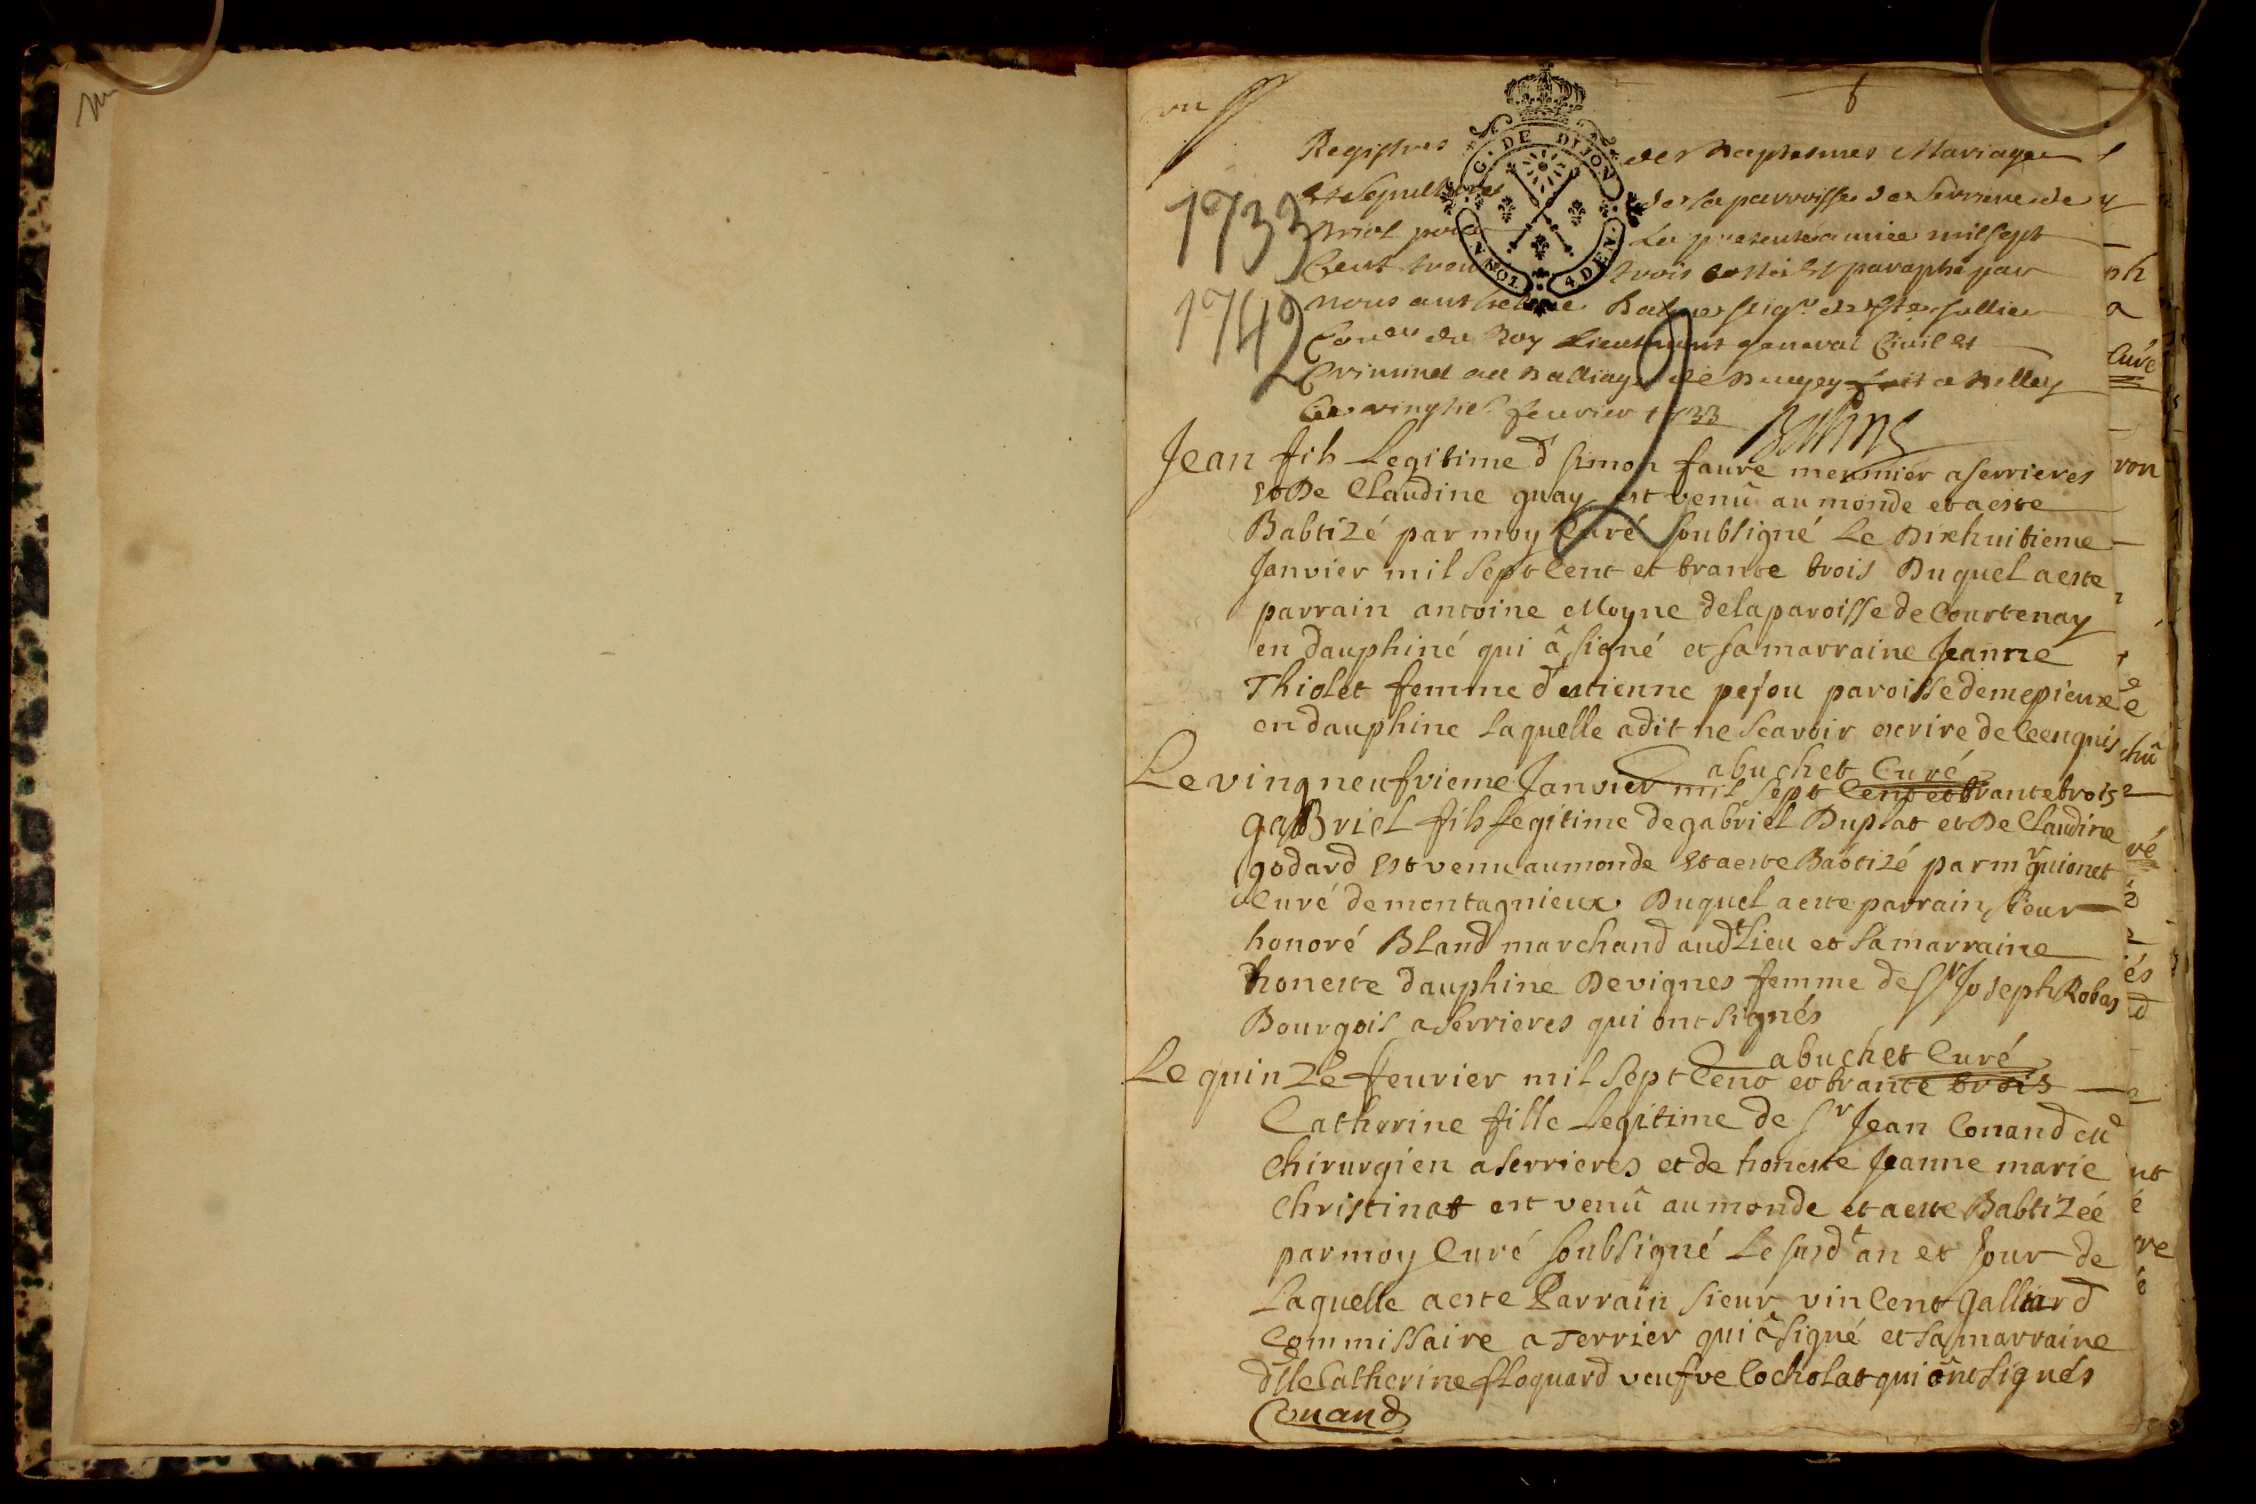 vu
G. DE DIJON
IONN. 4 DEN.
1733
1742
Registres des Baptesmes Mariages
et sepultures de la parroisse de serriere de
Briot pour La presente année mil sept
Cent trente trois Cotté et paraphé par
nous anthelme Balme
Coner du Roy Lieutenant general Civil et
Criminel au Balliage de Bugey fait a Belley
Ce vingtiel feuvrier 1733
Balme
Jean fils Legitime d simon faure meusnier a serrieres
et De Claudine guay est venû au monde et a este
Babtizé par moy Curé soubsigné Le Dixhuitieme
Janvier mil sept Cent et trante trois Duquel a este
parrain antoine Moyne de la paroisse de Courtenay
en dauphiné qui â signé et sa marraine Jeanne
Thiolet femme d'estienne pesou paroisse de mepieux
en dauphine Laquelle a dit ne scavoir escrire de Ce enquis
abuchet Curé
Le ving neufvieme Janvier mil sept Cent et trante trois
gabriel fils legitime de gabriel Duplat et De Claudine
godard est venu au monde et a este Babtizé par mr guionet
Curé de montagnieux Duquel a este parrain sieur
honoré Bland marchand audt Lieu et sa marraine
honeste dauphine Devignes femme de sr Joseph Robas
Bourgois a serrieres qui ont signés
abuchet Curé
Le quinze feuvrier mil sept Cent et trante trois
Catherine fille Legitime de sr Jean Conand
Chirurgien a serrieres et de honeste Jeanne marie
Christinat est venû au monde et a este Babtizée
par moy Curé soubsigné Le susdt an et Jour de
Laquelle a este Parrain sieur vincent galliard
Commissaire a Terrier qui â signé et sa marraine
dlle Catherine floquard veufve Cocholat qui ônt signés
Conand